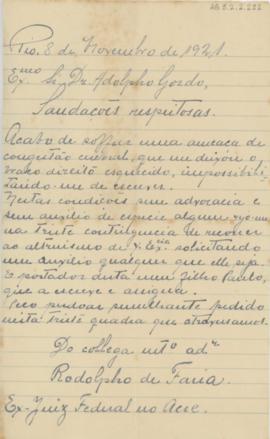 AG 5.2.2.252
Rio, 8 de Novembro de 1921.
Exmo Sr. Dr. Adolpho Gordo,
Saudações respeitosas.
Acabo de soffrer uma ameaça de
congestão cerebral, que me deixou o
braço direito esquecido, impossibili-
tando-me de escrever.
Nestas condições sem advocacia e
sem auxilio de especie alguma vejo-me
na triste contingencia de recorrer
ao altruismo de V. Excia solicitando
um auxilio qualquer que elle seja.
O portador desta meu filho Paulo,
que a escreve e assigna.
Peço perdoar semelhante pedido
nesta triste quadra que atravessamos.
Do collega mto adr
Rodolpho de Faria
Ex-Juiz Federal no Acre.